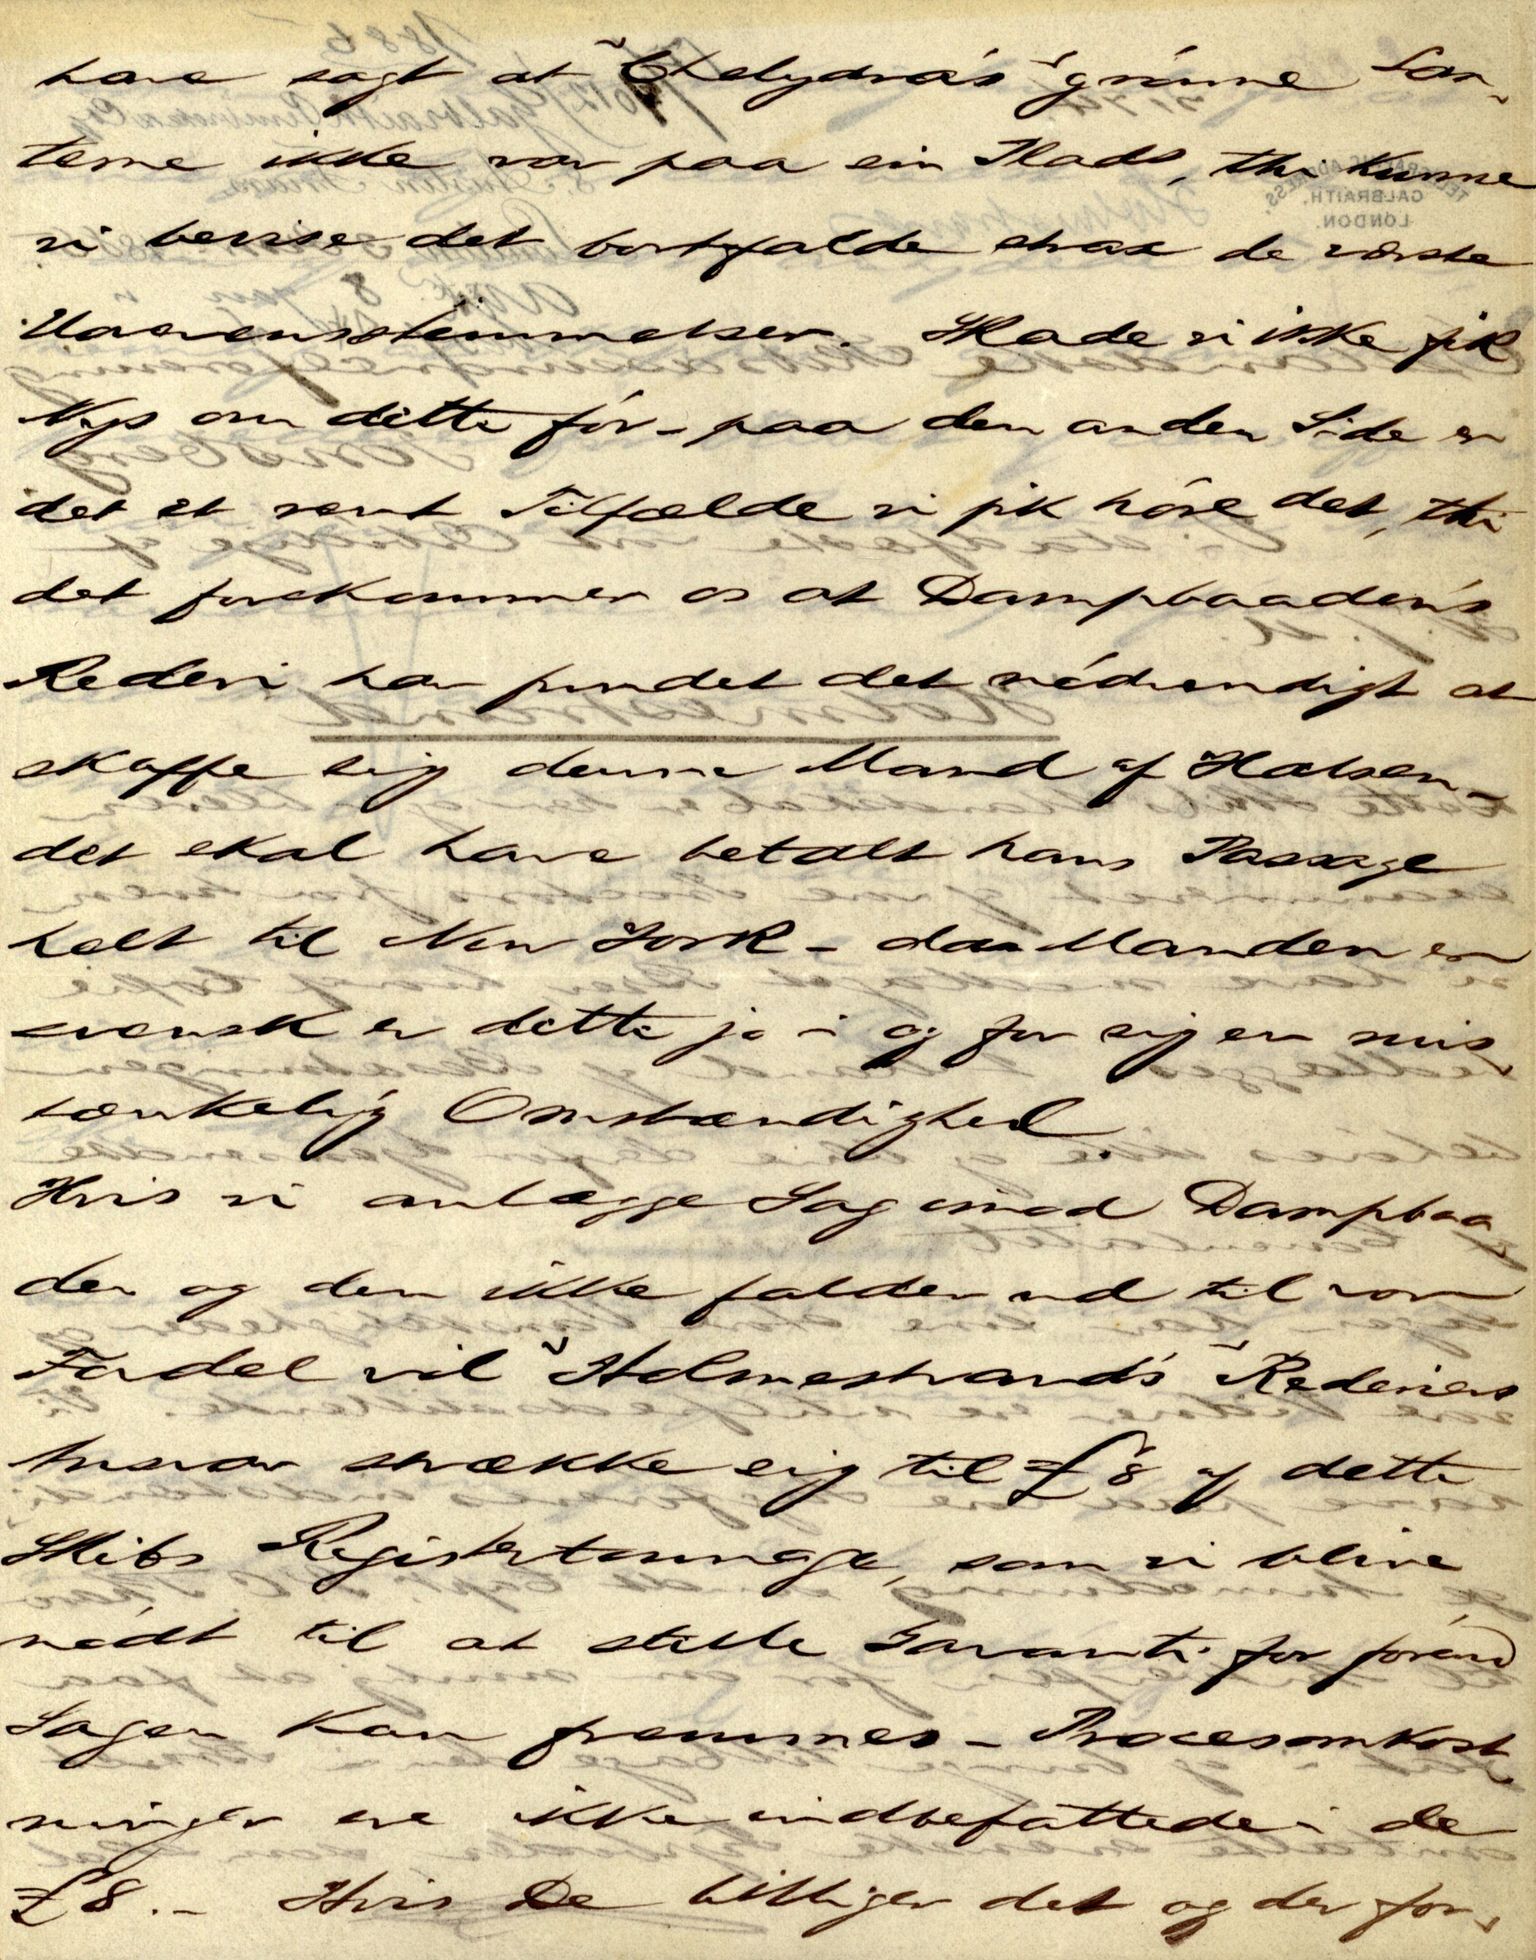 have sagt at "Chelydra's" grönne Lan-
terne ikke var paa sin Plads, thi kunne
vi bevise det bortfalde strax de værste
Uoverensstemmelser. Skade vi ikke fik
Nys om dette för - paa den anden Side er
det et rent Tilfælde vi fik höre det, thi
det forekommer os at Dampbaaden's
Rederi har fundet det nödvendigt at
skaffe sig denne Mand af Halsen -
det skal have betalt hans Passage
helt til New York - da Manden er
svensk er dette jo i og for sig en mis-
tænkelig Omstændighed.
Hvis vi anlægge Sag imod Dampbaa-
den og den ikke falder ud til vor
Fordel vil "Holmestrand's" Rederiers
Ansvar strække sig til £8 af dette
Skibs Registertonnage, som vi blive
nödt til at stille Garanti for förend
Sagen kan fremmes - Procesomkost-
ninger ere ikke indbefattede i de
£8. - Hvis De billiger det og der for-